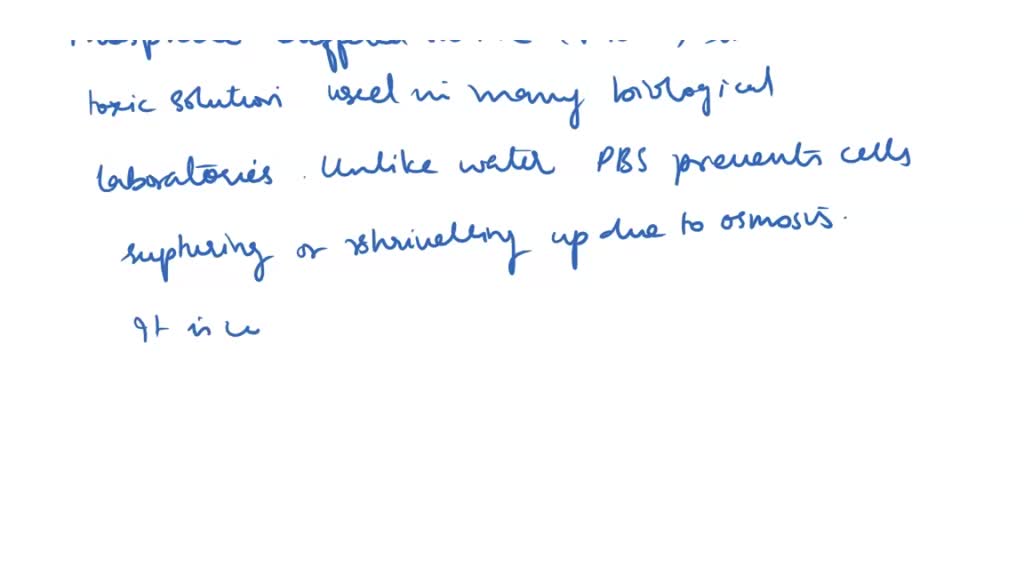 toxic solution used in many biological
laboratories. Unlike water PBS prevents cells
rupturing or shrivelling up due to osmosis.
It is